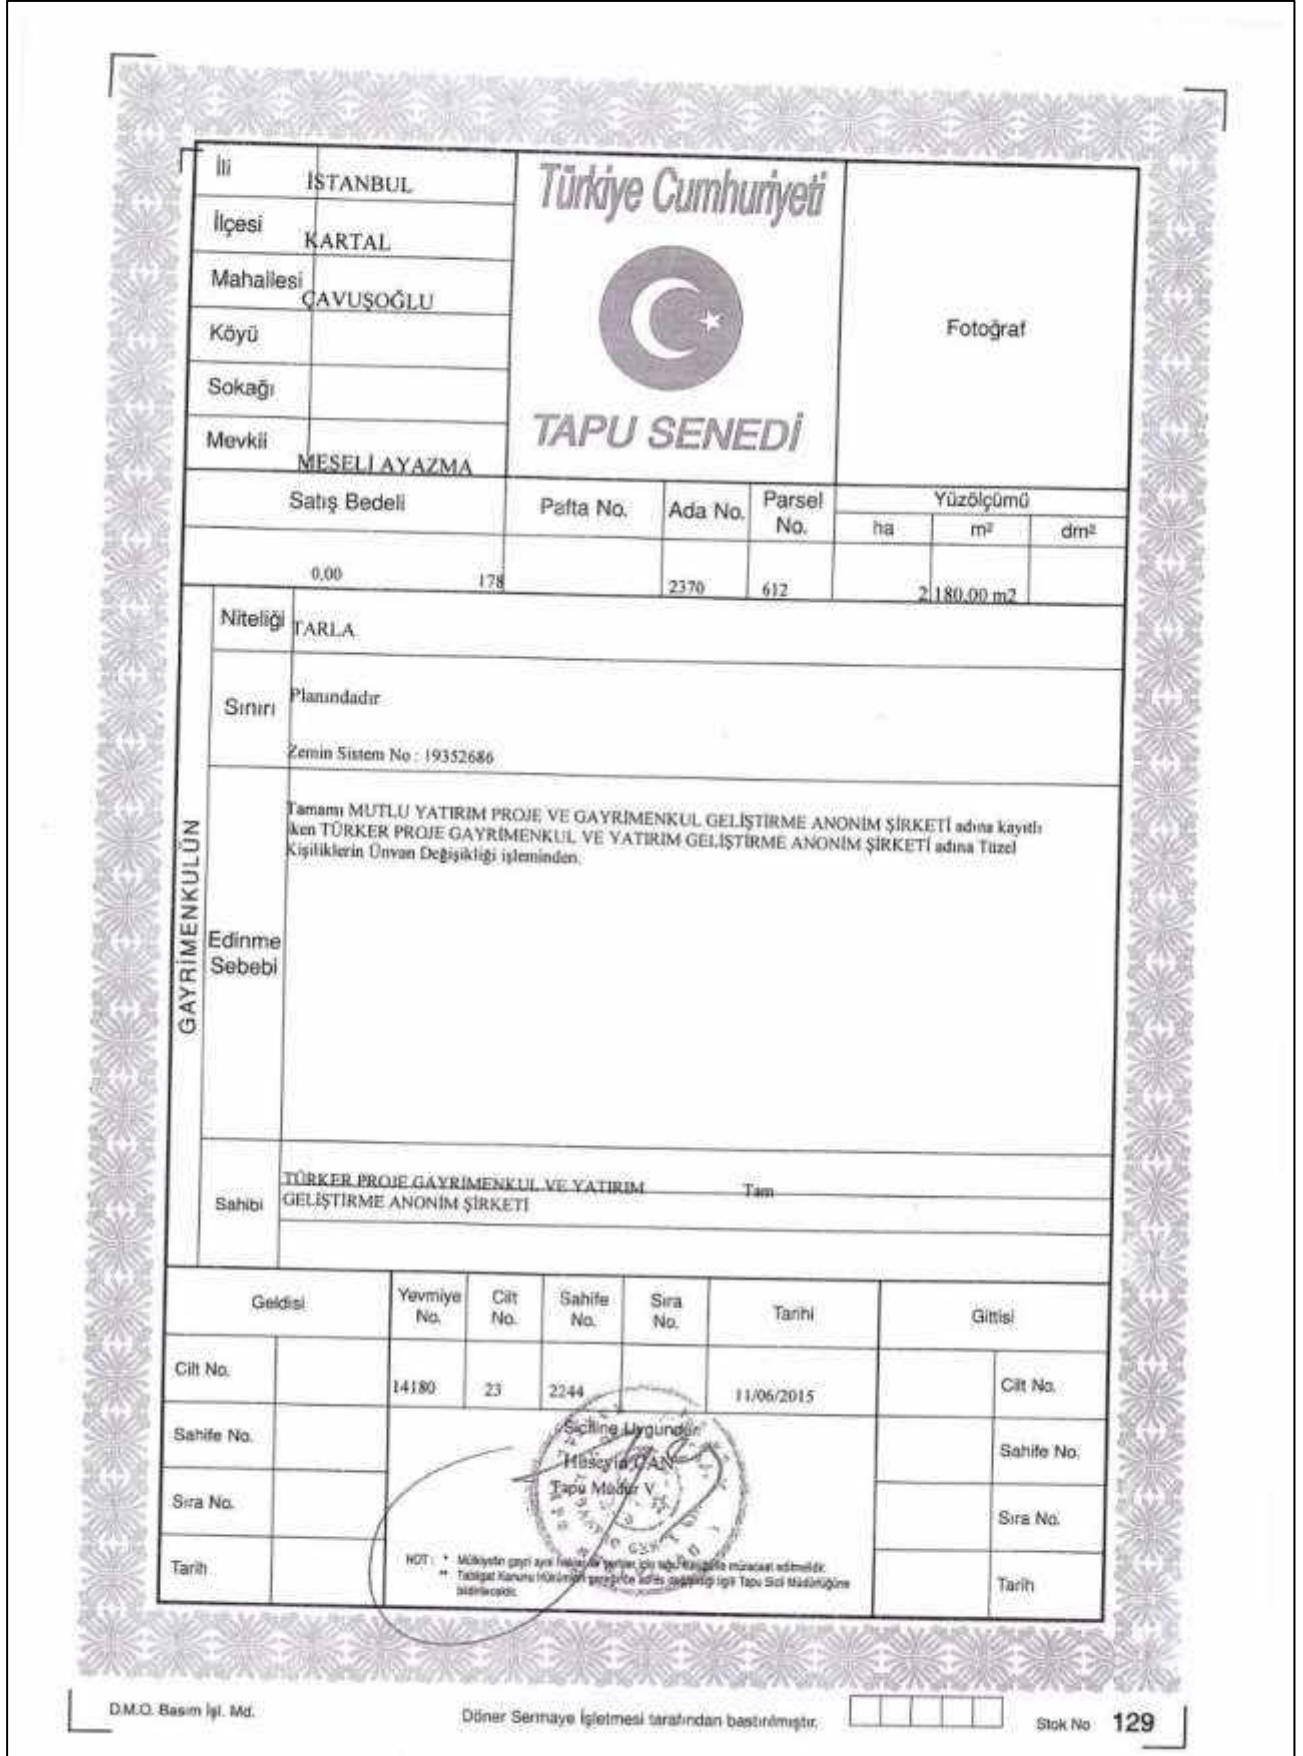 İli
İSTANBUL
İlçesi
KARTAL
Mahallesi
ÇAVUŞOĞLU
Köyü
Sokağı
Mevkii
MEŞELİ AYAZMA
Türkiye Cumhuriyeti
TAPU SENEDİ
Fotoğraf
Satış Bedeli
Pafta No.
Ada No.
Parsel No.
Yüzölçümü
ha
m²
dm²
0,00
178
2370
612
2.180,00 m2
GAYRİMENKULÜN
Niteliği
TARLA
Sınırı
Planındadır
Zemin Sistem No : 19352686
Edinme Sebebi
Tamamı MUTLU YATIRIM PROJE VE GAYRİMENKUL GELİŞTİRME ANONİM ŞİRKETİ adına kayıtlı
iken TÜRKER PROJE GAYRİMENKUL VE YATIRIM GELİŞTİRME ANONİM ŞİRKETİ adına Tüzel
Kişiliklerin Ünvan Değişikliği işleminden.
Sahibi
TÜRKER PROJE GAYRİMENKUL VE YATIRIM Tam
GELİŞTİRME ANONİM ŞİRKETİ
Geldisi
Yevmiye No.
Cilt No.
Sahife No.
Sıra No.
Tarihi
Gittisi
Cilt No.
14180
23
2244
11/06/2015
Cilt No.
Siciline Uygundur
Sahife No.
Hüseyin CAN
Sahife No.
Tapu Müdür V.
Sıra No.
Sıra No.
Tarih
NOT : * Mülkiyetin gayri ayni haklar için tapu müracaat edilmelidir.
** Tebligat Kanunu Hükümleri gereğince adres değişikliği ilgili Tapu Sicil Müdürlüğüne
bildirilecektir.
Tarih
D.M.O. Basım İşl. Md.
Döner Sermaye İşletmesi tarafından bastırılmıştır.
Stok No 129